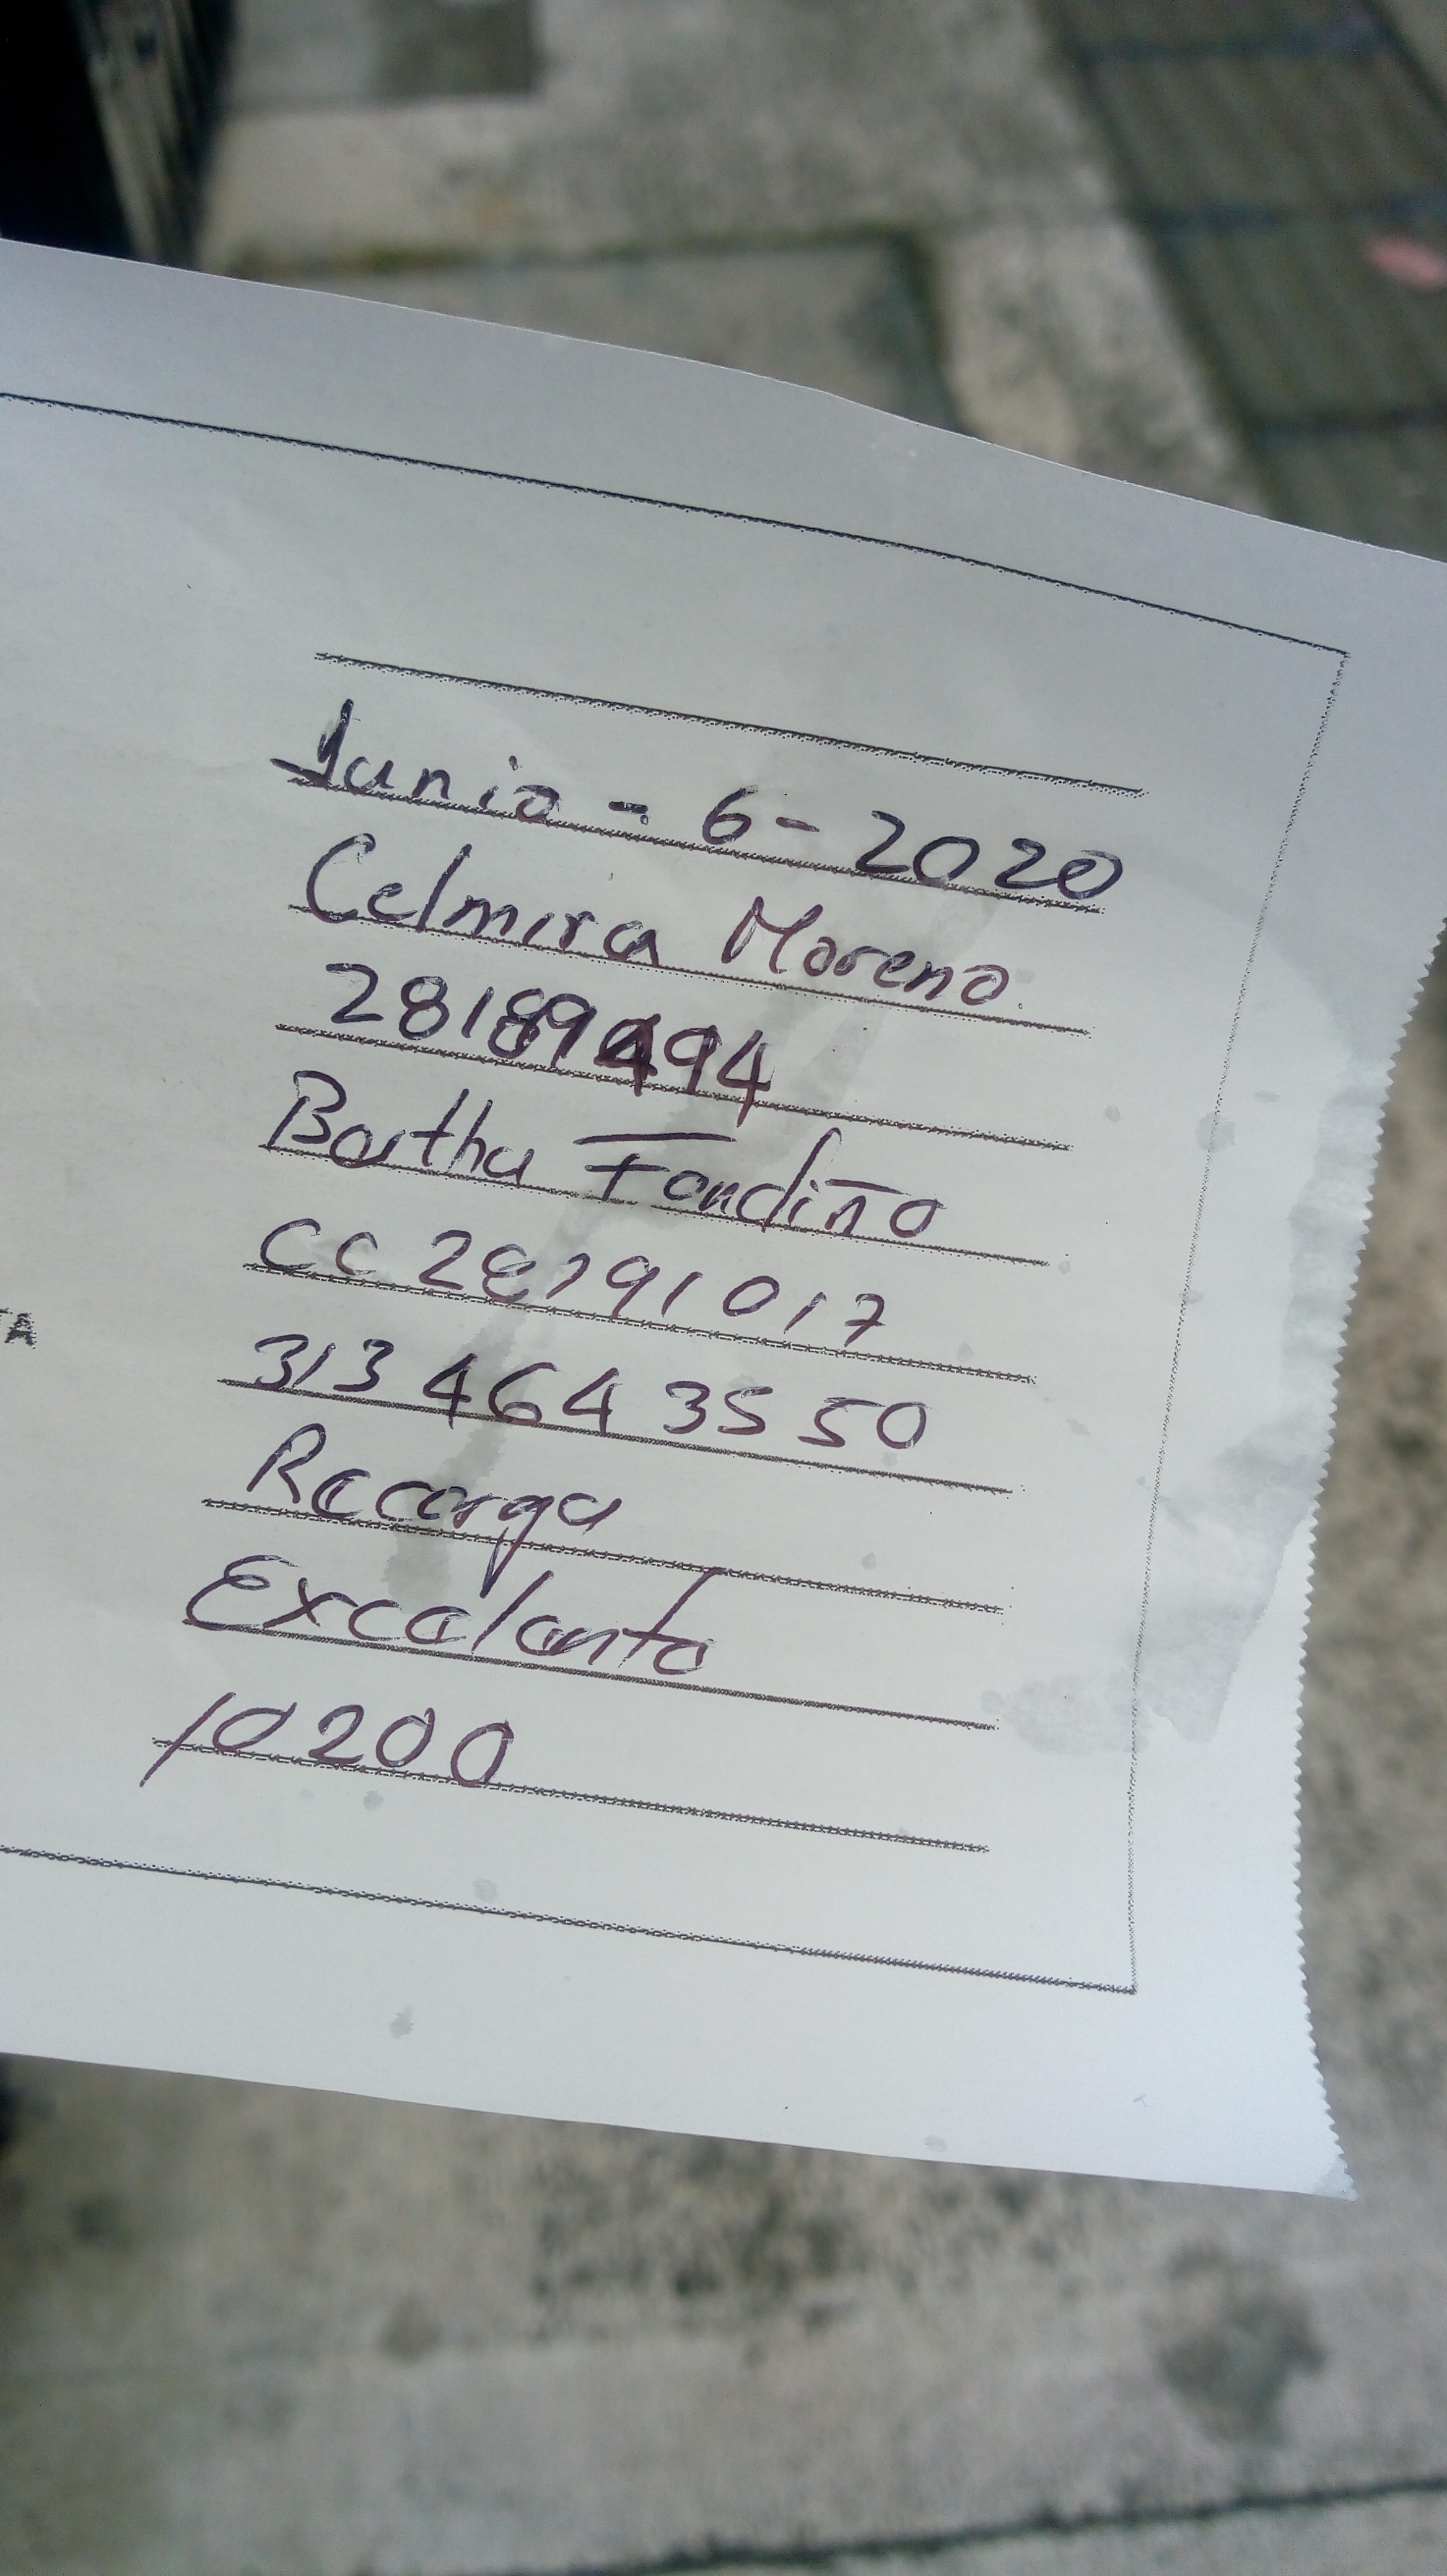 Junio - 6 - 2020
Celmira Moreno
28189494
Bertha Fandiño
CC 28191017
313 464 3550
Recarga
Excelente
10200
TA